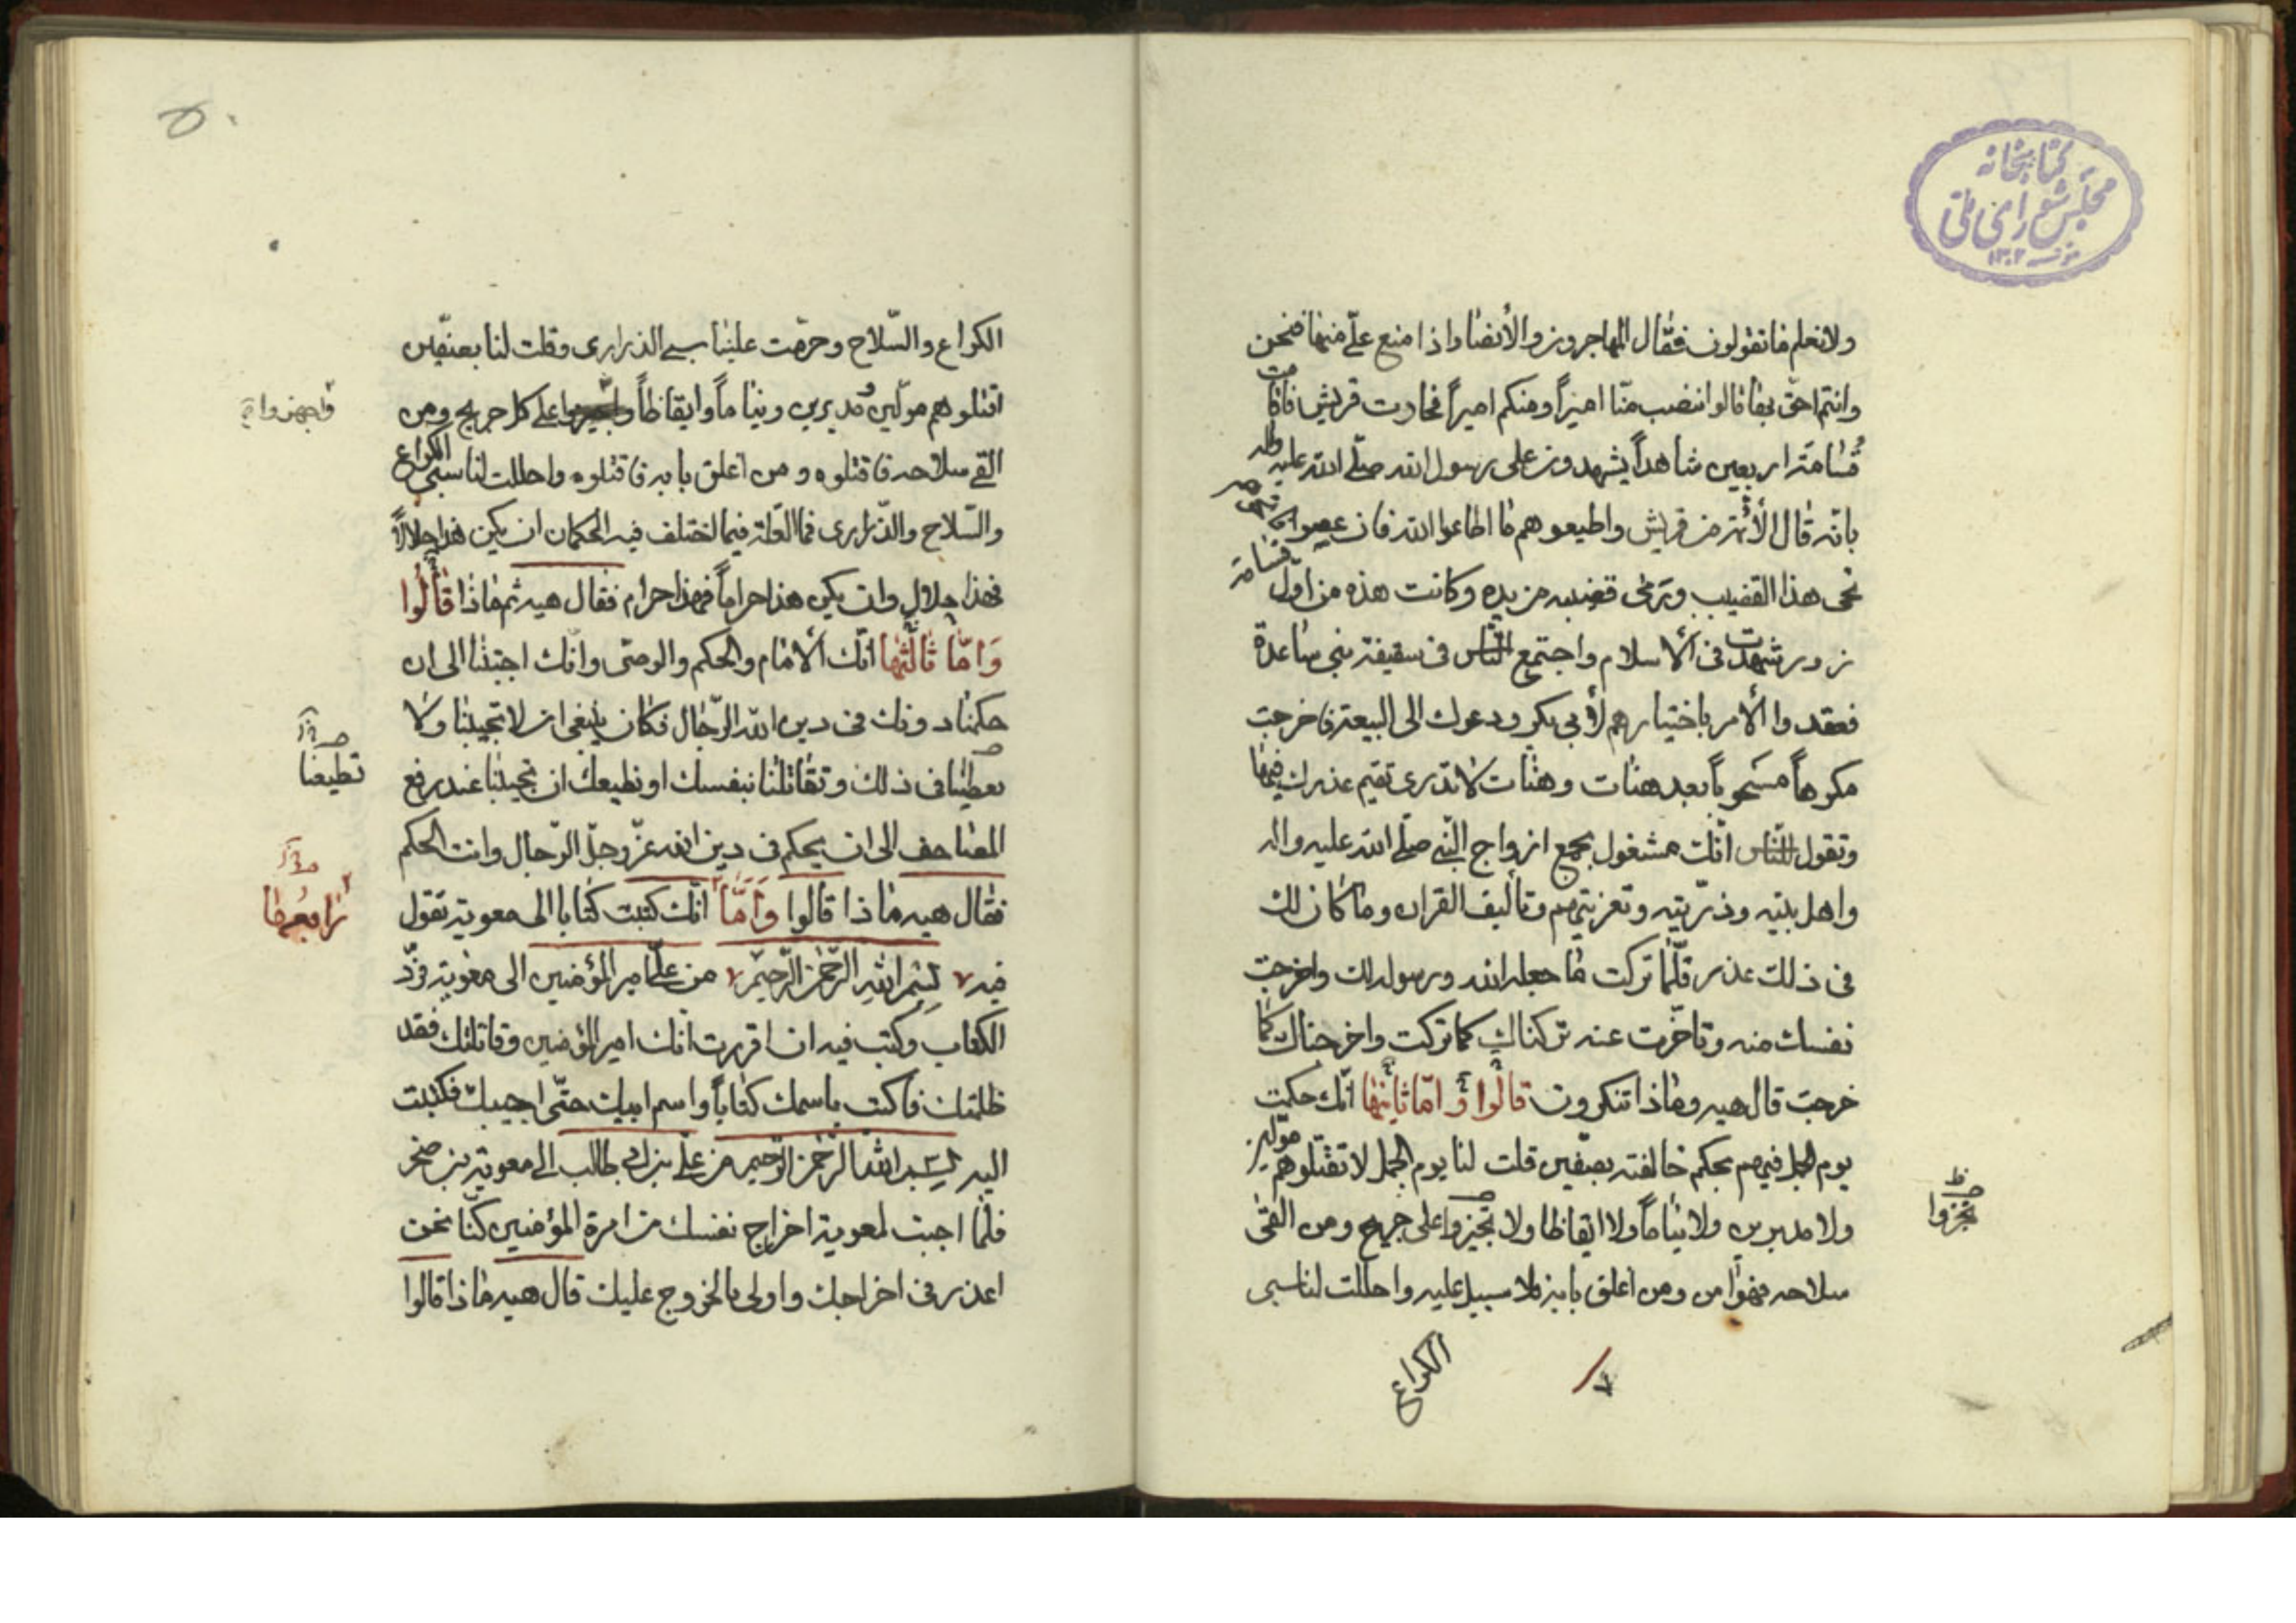 كتابخانه
مجلس شورای ملی
١٣٠٢
ولا نعلم ما تقولون فقال المهاجرون والأنصار اذا منع علي منها فنحن
وانتم احق بها قالوا ننصب منّا اميراً ومنكم اميراً فجاءت قريش فاقامت
قسامة اربعين شاهداً يشهدون على رسول الله صلّى الله عليه واله
بانه قال الأئمة من قريش واطيعوهم ما اطاعوا الله فان عصوا
نحى هذا القضيب ورمى قضيبه من يده وكانت هذه من اول قسامة
زور شهدت فى الاسلام واجتمع الناس فى سقيفة بني ساعدة
فعقدوا الأمر باختيارهم لأبي بكر ودعوك الى البيعة فاخرجت
مكرهاً مسحوباً بعد هنات وهنات لا ندرى تقيم عذرك فيها
وتقول للناس انّك مشغول بجمع ازواج النّبي صلّى الله عليه واله
واهل بيته وذرّيته وتعزيتهم وتاليف القران وما كان لك
فى ذلك عذر فلمّا تركت ما جعله الله ورسوله لك واخرجت
نفسك منه وتاخّرت عنه تركناك كما تركت واخرجناك كما
خرجت قال هيه وماذا تنكرون قالوا وامّا ثانيها انّك حكمت
يوم الجمل فيهم بحكم خالفته بصفّين قلت لنا يوم الجمل لا تقتلوهم مولّين
ولا مدبرين ولا نياماً ولا ايقاظا ولا تجيزوا على جريح ومن القى
تجهزوا
سلاحه فهو امن ومن اغلق بابه فلا سبيل عليه واحللت لنا سبى
الكراع
٥٠
الكراع والسّلاح وحرّمت علينا سبى الذرارى وقلت لنا بصفّين
اقتلوهم مولّين ومدبرين ونياماً وايقاظاً واجيزوا على كل جريح ومن
واجهزوا
القى سلاحه فاقتلوه ومن اغلق بابه فاقتلوه واحللت لنا سبى الكراع
والسّلاح والذّرارى فما العلة فيما اختلف فيه الحكمان ان يكن هذا حلالاً
فهذا حلال وان يكن هذا حراماً فهذا حرام فقال هيه ثم ماذا قالوا
وامّا ثالثها انّك الامام والحكم والوصّى وانّك اجبتنا الى ان
حكمنا دونك فى دين الله الرّجال فكان ينبغى ان لا تجيبنا ولا
تعطينا فى ذلك وتقاتلنا بنفسك او نطيعك ان تجيبنا عند رفع
تطيعنا
المصاحف الى ان يحكم فى دين الله عزّ وجلّ الرّجال وانت الحكم
فقال هيه ماذا قالوا وأمّا انّك كتبت كتابا الى معوية تقول
رابعها
فيه بسم الله الرّحمن الرّحيم من علي امير المؤمنين الى معوية فردّ
الكتاب وكتب فيه ان اقررت انّك امير المؤمنين وقاتلتك فقد
ظلمتك فاكتب باسمك كتاباً واسم ابيك حتّى اجيبك فكتبت
اليه بسم الله الرّحمن الرّحيم من علي بن ابي طالب الى معوية بن صخر
فلمّا اجبت لمعوية اخراج نفسك من امرة المؤمنين كنّا نحن
اعذر فى اخراجك واولى بالخروج عليك قال هيه ماذا قالوا